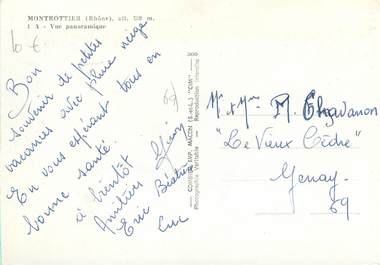 MONTROTTIER (Rhône), alt.
1 A - Vue panoramique
10 €
Bon
souvenir de petites
vacances avec pluie neige
En vous espérant tous en
bonne santé.
à bientôt
Amitiés
Eric Béatrice
Luc
69
COMBIER IMP. MACON (S.-et-L.) "CIM"
Photographie Véritable - Reproduction interdite
Mr et Mme M. Chavanon
"Le Vieux Cèdre"
Genay.
69